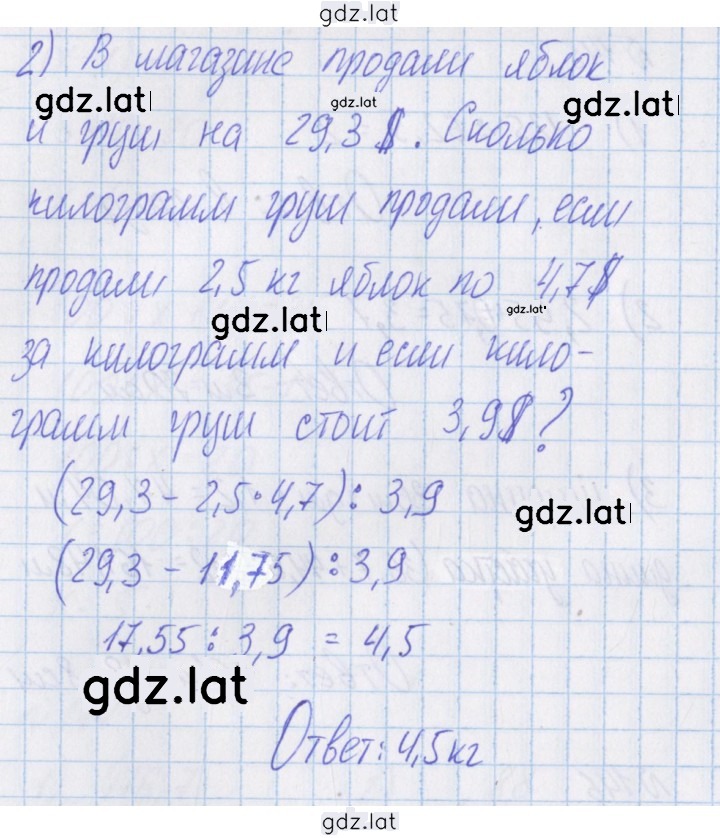 gdz.lat
2) В магазине продали яблок
gdz.lat gdz.lat gdz.lat
и груш на 29,3 $. Сколько
килограмм груш продали, если
продали 2,5 кг яблок по 4,7$
gdz.lat gdz.lat
за килограмм и если кило-
грамм груш стоит 3,9$?
(29,3 - 2,5·4,7) : 3,9
gdz.lat
(29,3 - 11,75) : 3,9
17,55 : 3,9 = 4,5
gdz.lat
Ответ: 4,5 кг
gdz.lat